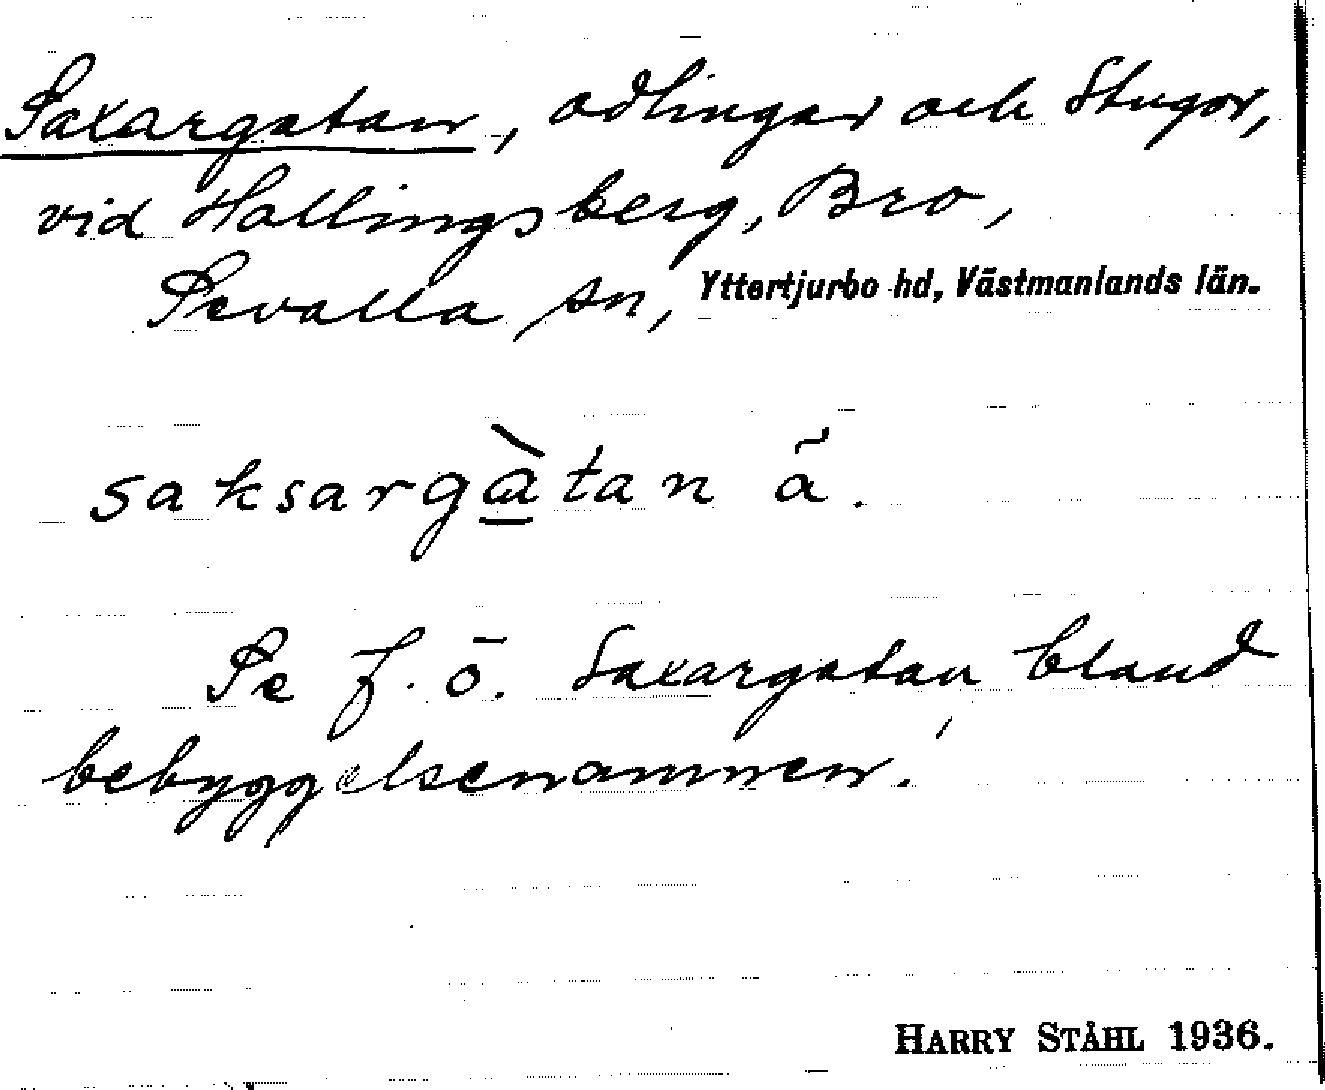 Saxargatan, odlingar och stugor,
vid Hallingsberg, Bro,
Sevalla sn, Yttertjurbo hd, Västmanlands län.
saksargàtan ã.
Se f. ö. Saxargatan bland
bebyggelsenamnen.
HARRY STÅHL 1936.